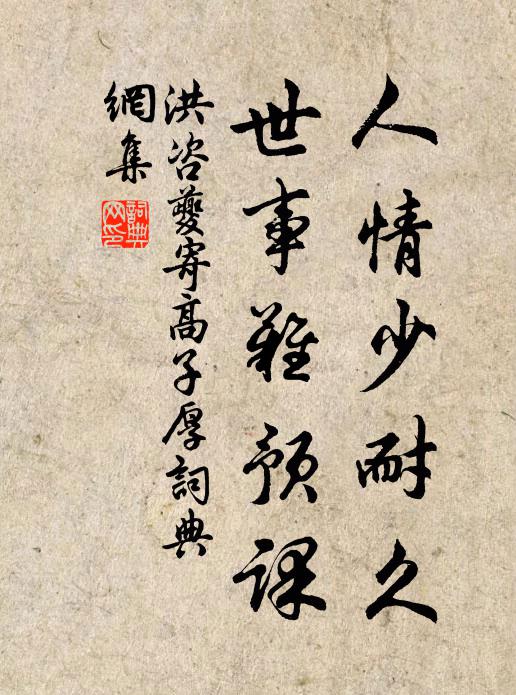 人情少耐久
世事難預課
洪咨夔寄高子厚詞典
網集
詞典
网印